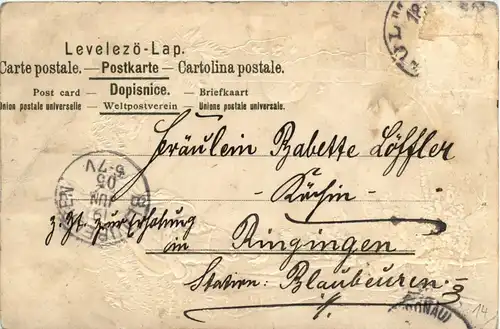 Levelezö-Lap.
Carte postale. — Postkarte — Cartolina postale.
Post card — Dopisnice. — Briefkaart
Union postale universelle — Weltpostverein — Unione postale universale.
ULM
Fräulein Babette Löffler
Köchin
z. Zt. zur Erholung
in Ringingen
Station: Blaubeuren
5-7 V
05
JUN
DONAU)
14